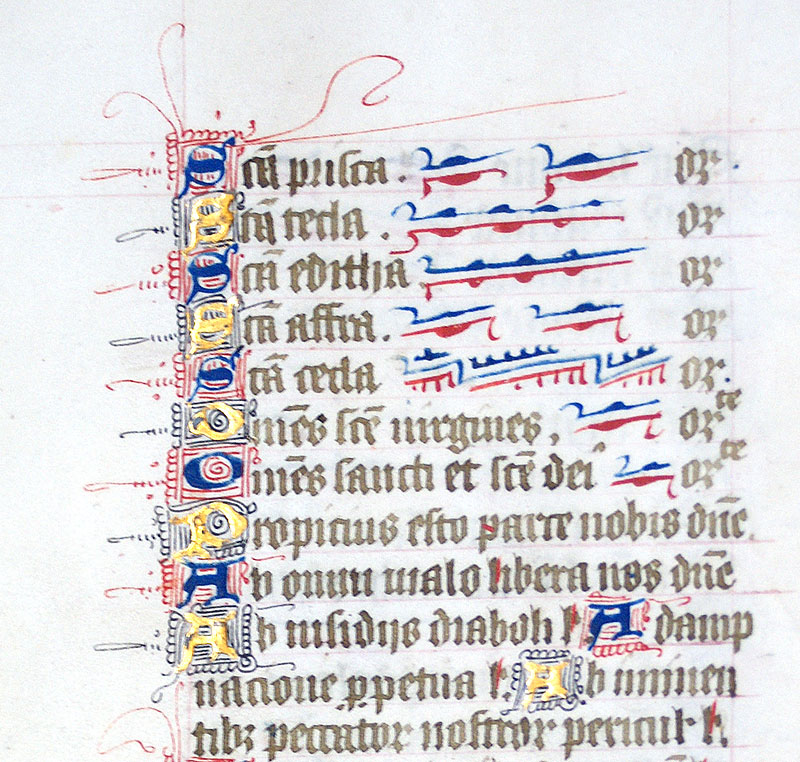 Scā prisca. or.
Scā tecla. or
Scā editha or
Scā affra. or
Scā tecla or.
Om̄es scē uirgines. orte
Om̄es sancti et scē dei orte
Propicius esto parce nobis dn̄e.
Ab omni malo libera nos dn̄e
Ab insidijs diaboli l. A damp
nacione ꝑpetua l. Ab iminen
tibꝫ peccator nostror pericul l.